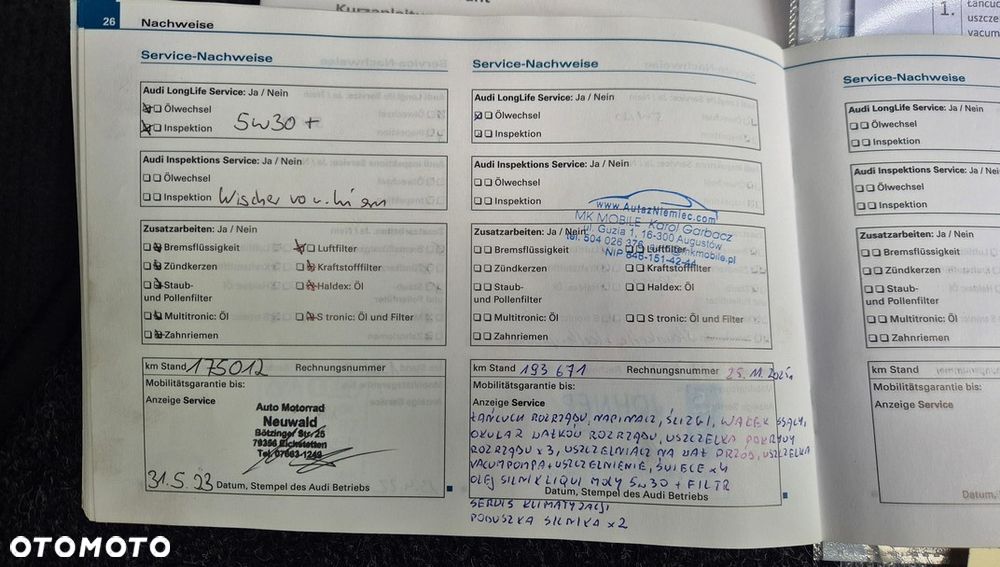 Kurzanleitung
1.
uszcze
vacum
26 Nachweise
Service-Nachweise
Audi LongLife Service: Ja / Nein
Ölwechsel
Inspektion 5W30 +
Audi Inspektions Service: Ja / Nein
Ölwechsel
Inspektion Wischer vo
Zusatzarbeiten: Ja / Nein
Bremsflüssigkeit Luftfilter
Zündkerzen Kraftstofffilter
Staub- Haldex: Öl
und Pollenfilter
Multitronic: Öl S tronic: Öl und Filter
Zahnriemen
km Stand 175012 Rechnungsnummer
Mobilitätsgarantie bis:
Anzeige Service
Auto Motorrad
Neuwald
Bötzinger Str. 25
79356 Eichstetten
Tel. 07663-1249
31.5.23 Datum, Stempel des Audi Betriebs
Service-Nachweise
Audi LongLife Service: Ja / Nein
Ölwechsel
Inspektion
Audi Inspektions Service: Ja / Nein
Ölwechsel
Inspektion
www.AutazNiemiec.com
MK MOBILE Karol Garbacz
ul. Guzia 1, 16-300 Augustów
tel. 504 026 376 mkmobile.pl
NIP 846-151-42-44
Zusatzarbeiten: Ja / Nein
Bremsflüssigkeit Luftfilter
Zündkerzen Kraftstofffilter
Staub- Haldex: Öl
und Pollenfilter
Multitronic: Öl S tronic: Öl und Filter
Zahnriemen
km Stand 193 671 Rechnungsnummer 25.11.2025r.
Mobilitätsgarantie bis:
Anzeige Service
ŁAŃCUCH ROZRZĄDU, NAPINACZ, ŚLIZGI, WAŁEK SSĄCY,
OKULAR WAŁKÓW ROZRZĄDU, USZCZELKA POKRYWY
ROZRZĄDU x3, USZCZELNIACZ NA WAŁ PRZÓD, USZCZELKA
VACUMPOMPA, USZCZELNIENIE, ŚWIECE x4
OLEJ SILNIK LIQUI MOLY 5W30 + FILTR
Datum, Stempel des Audi Betriebs
SERWIS KLIMATYZACJI
PODUSZKA SILNIKA x2
Service-Nachweise
Audi LongLife Service: Ja / Nein
Ölwechsel
Inspektion
Audi Inspektions Service: Ja / Nein
Ölwechsel
Inspektion
Zusatzarbeiten: Ja / Nein
Bremsflüssigkeit
Zündkerzen
Staub-
und Pollenfilter
Multitronic: Öl
Zahnriemen
km Stand
Mobilitätsgarantie bis:
Anzeige Service
Datum,
OTOMOTO